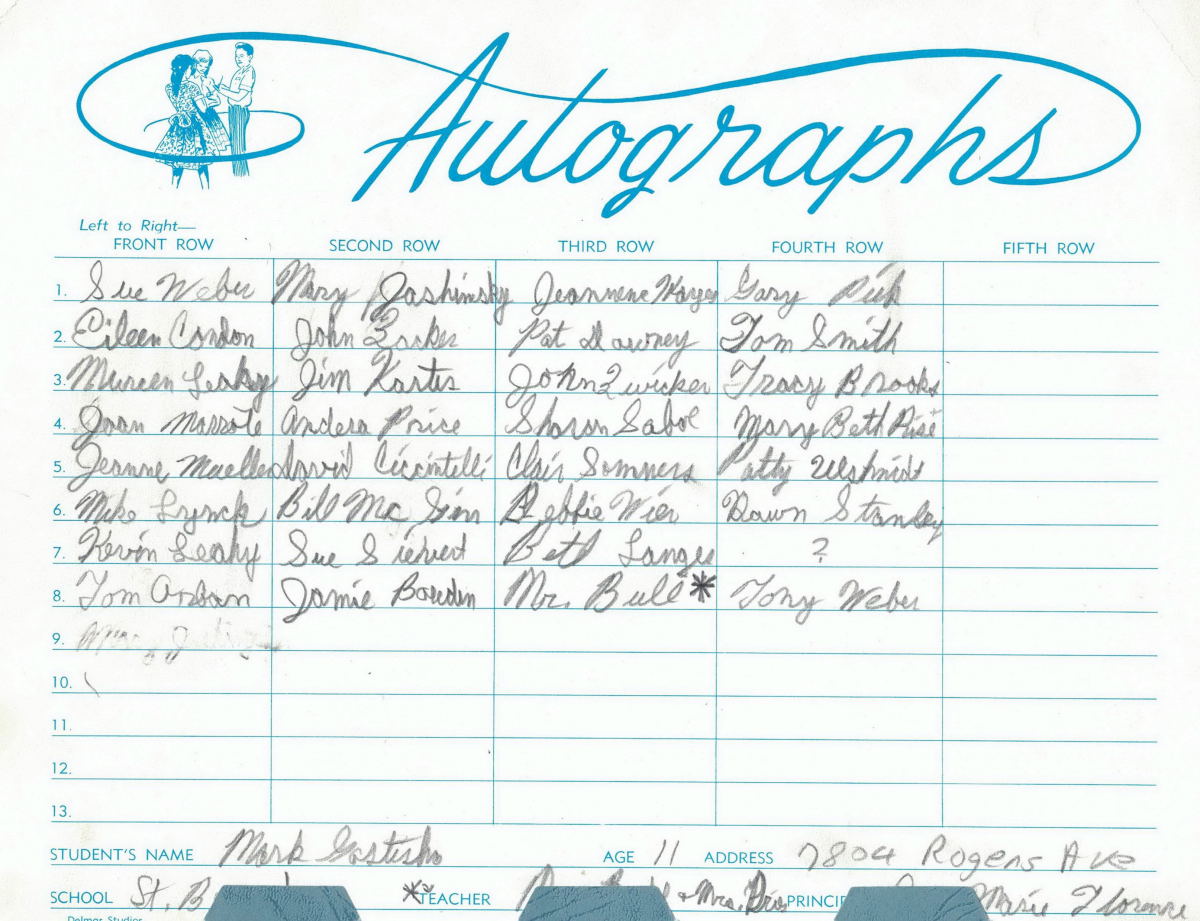 Autographs
Left to Right—
FRONT ROW SECOND ROW THIRD ROW FOURTH ROW FIFTH ROW
1. Sue Weber Mary Jashinsky Jeannene Gary
2. Eileen Condon John Pat Tom Smith
3. Mureen Leahy Jim Kartis John Zwicker Tracy Brooks
4. Joan Andera Price Sharon Sabol Mary Beth
5. Jeanne Mueller David Ciccintelli Clair Sommers Patty
6. Mike Lrynch Bill Mc Ginn Debbie Wier Dawn Stanley
7. Kevin Leahy Sue Sievert Beth Langer ?
8. Tom Jamie Bowden Mr. Bull* Tony Weber
9.
10.
11.
12.
13.
STUDENT'S NAME Mark AGE 11 ADDRESS 7804 Rogers Ave
SCHOOL St. B * TEACHER & Mrs. PRINCI Marie Florence
Delmar Studios